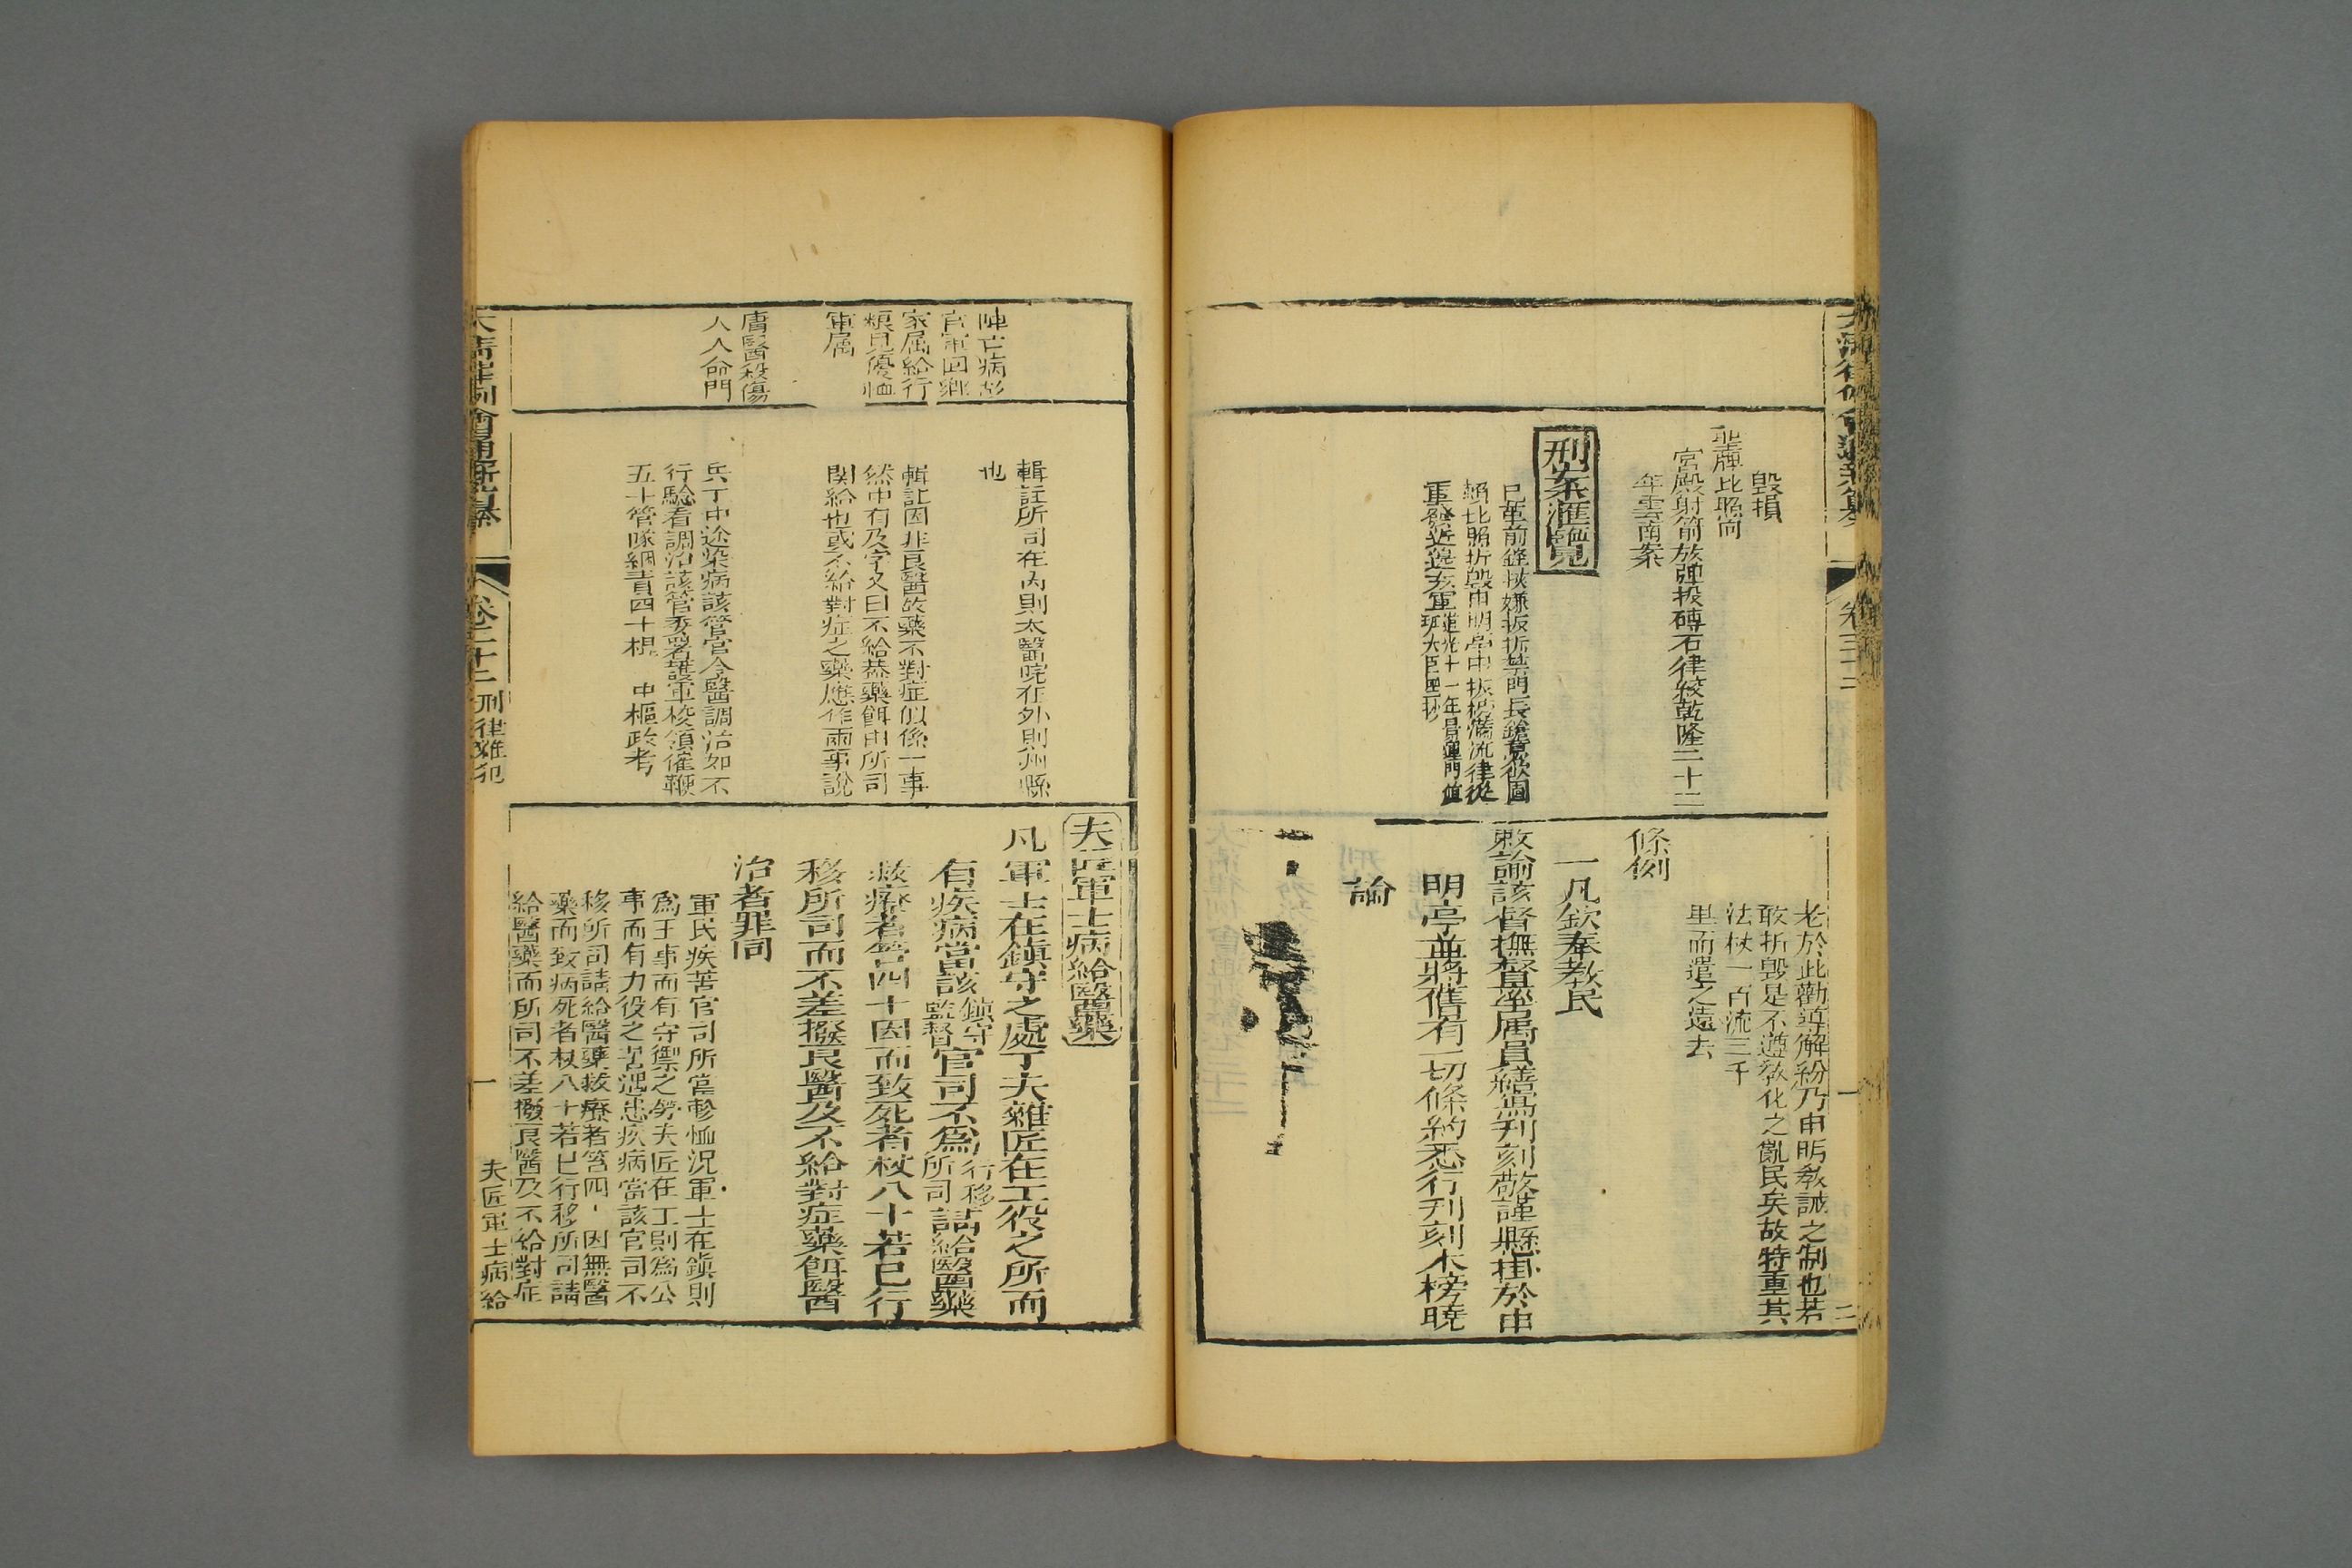 毀損
聖牌比照向
宮殿射箭放彈投磚石律絞乾隆二十二
年雲南案
刑案匯覽
已革前鋒挾嫌扳折禁門長鎗意欲圖
賴比照折毀申明亭中板榜滿流律從
重發近邊充軍
道光十一年
老於此勸導解紛乃申明教誡之制也若
敢折毀是不遵教化之亂民矣故特重其
法杖一百流三千
里而遣之遠去
條例
一凡欽奉教民
敕諭該督撫督率屬員繕寫刋刻敬謹懸掛於申
明亭並將舊有一切條約悉行刋刻木榜曉
諭
卷三十二
陣亡病故
官軍回鄉
家属給行
糧見優恤
軍属
庸醫殺傷
人人命門
輯註所司在內則太醫院在外則州縣
也
輯註因非良醫故藥不對症似係一事
然中有及字又曰不給藥餌由所司
関給也或不給對症之藥應作兩事說
兵丁中途染病該管官令醫調治如不
行驗看調治該管委署護軍校領催鞭
五十管隊綑責四十棍 中樞政考
夫匠軍士病給醫藥
凡軍士在鎮守之處丁夫雜匠在工役之所而
有疾病當該鎮守監督官司不為行移所司請給醫藥
救療者笞四十因而致死者杖八十若已行
移所司而不差撥良醫及不給對症藥餌醫
治者罪同
軍民疾苦官司所當軫恤況軍士在鎮則
為王事而有守禦之勞夫匠在工則為公
事而有力役之苦遇患疾病當該官司不
移所司請給醫藥救療者笞四十因無醫
藥而致病死者杖八十若已行移所司請
給醫藥而所司不差撥良醫及不給對症
大清律例會通新纂
卷三十二
刑律雜犯
夫匠軍士病給